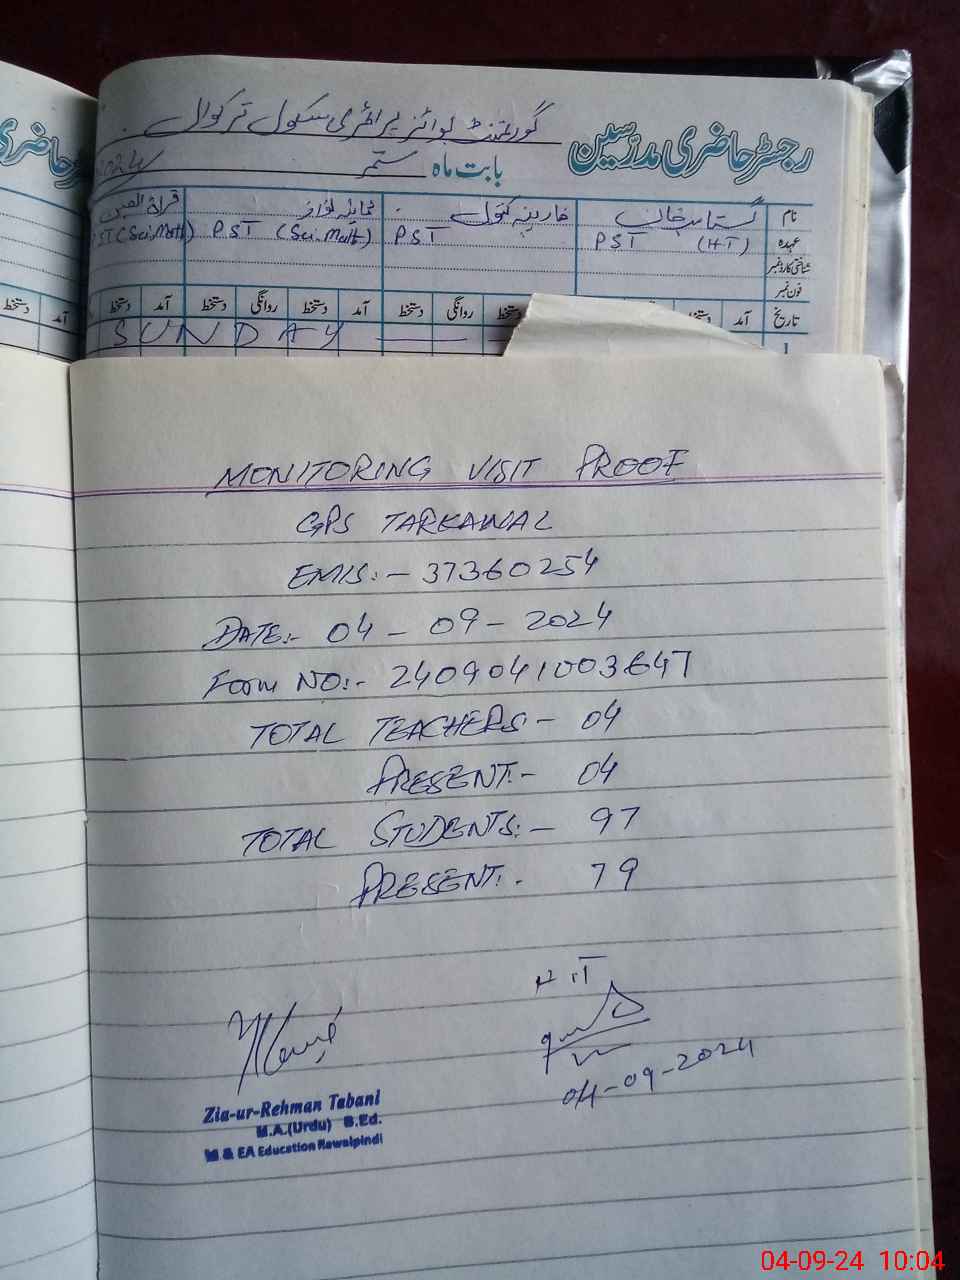 رجسٹر حاضری مدرسین
گورنمنٹ بوائز پرائمری سکول ترکوال
بابت ماہ ستمبر 2024
نام
گستاسب خان
عہدہ
PST (HT)
PST
PST (Sci.Math)
PST (Sci.Math)
شناختی کارڈ نمبر
فون نمبر
تاریخ آمد دستخط دستخط روانگی دستخط آمد دستخط روانگی دستخط آمد دستخط
1
SUNDAY
MONITORING VISIT PROOF
GPS TARKAWAL
EMIS:- 37360254
DATE:- 04-09-2024
Form NO:- 2409041003647
TOTAL TEACHERS- 04
PRESENT:- 04
TOTAL STUDENTS:- 97
PRESENT:- 79
H.T
04-09-2024
Zia-ur-Rehman Tabani
M.A.(Urdu) B.Ed.
M & EA Education Rawalpindi
04-09-24 10:04